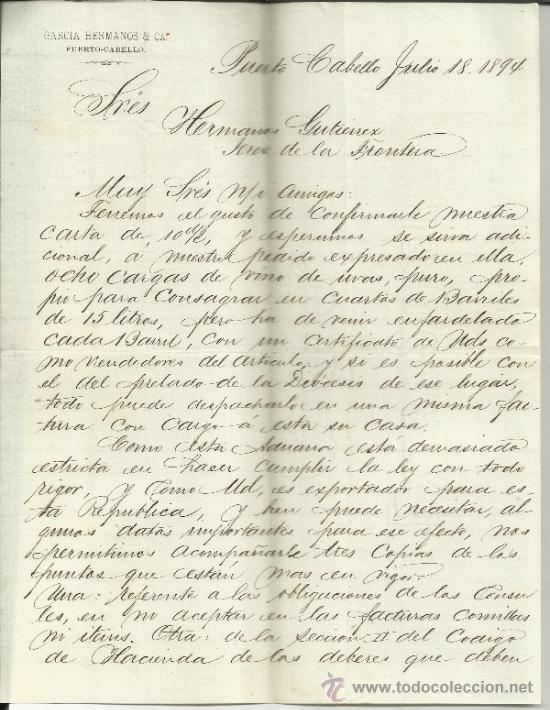 GARCIA HERMANOS & CA.
PUERTO-CABELLO.
Puerto Cabello Julio 18. 1894
Srés
Hermanos Gutierrez
Jerez de la Frontera
Muy Srés y amigos:
Tenemos el gusto de confirmarle nuestra
carta de, y esperamos se sirva adi-
cional, á nuestro pedido expresado en ella,
ocho cargas de vino de uvas, puro, pro-
pio para Consagrar en Cuartos de Barriles
de 15 litros, pero ha de venir enfardelado
cada Barril, con un certificado de Uds co-
mo vendedores del articulo, y si es posible con
el del prelado de la Diócesis de ese lugar,
todo puede despacharlo en una misma fac-
tura con cargo a esta su casa.
Como esta Aduana está demasiado
estricta en haser cumplir la ley con todo
rigor, y como Ud, es exportador para es-
ta Republica, y bien puede necesitar, al-
gunos datos importantes para ese efecto, nos
permitimos acompañarle tres Copias de los
puntos que están mas en rigor.
Una: referente a las obligaciones de los Consu-
les, en no aceptar en las facturas Comillas
ni items. Otra: de la Sección II del Codigo
de Hacienda de los deberes que deben
todocoleccion.net
www.todocoleccion.net